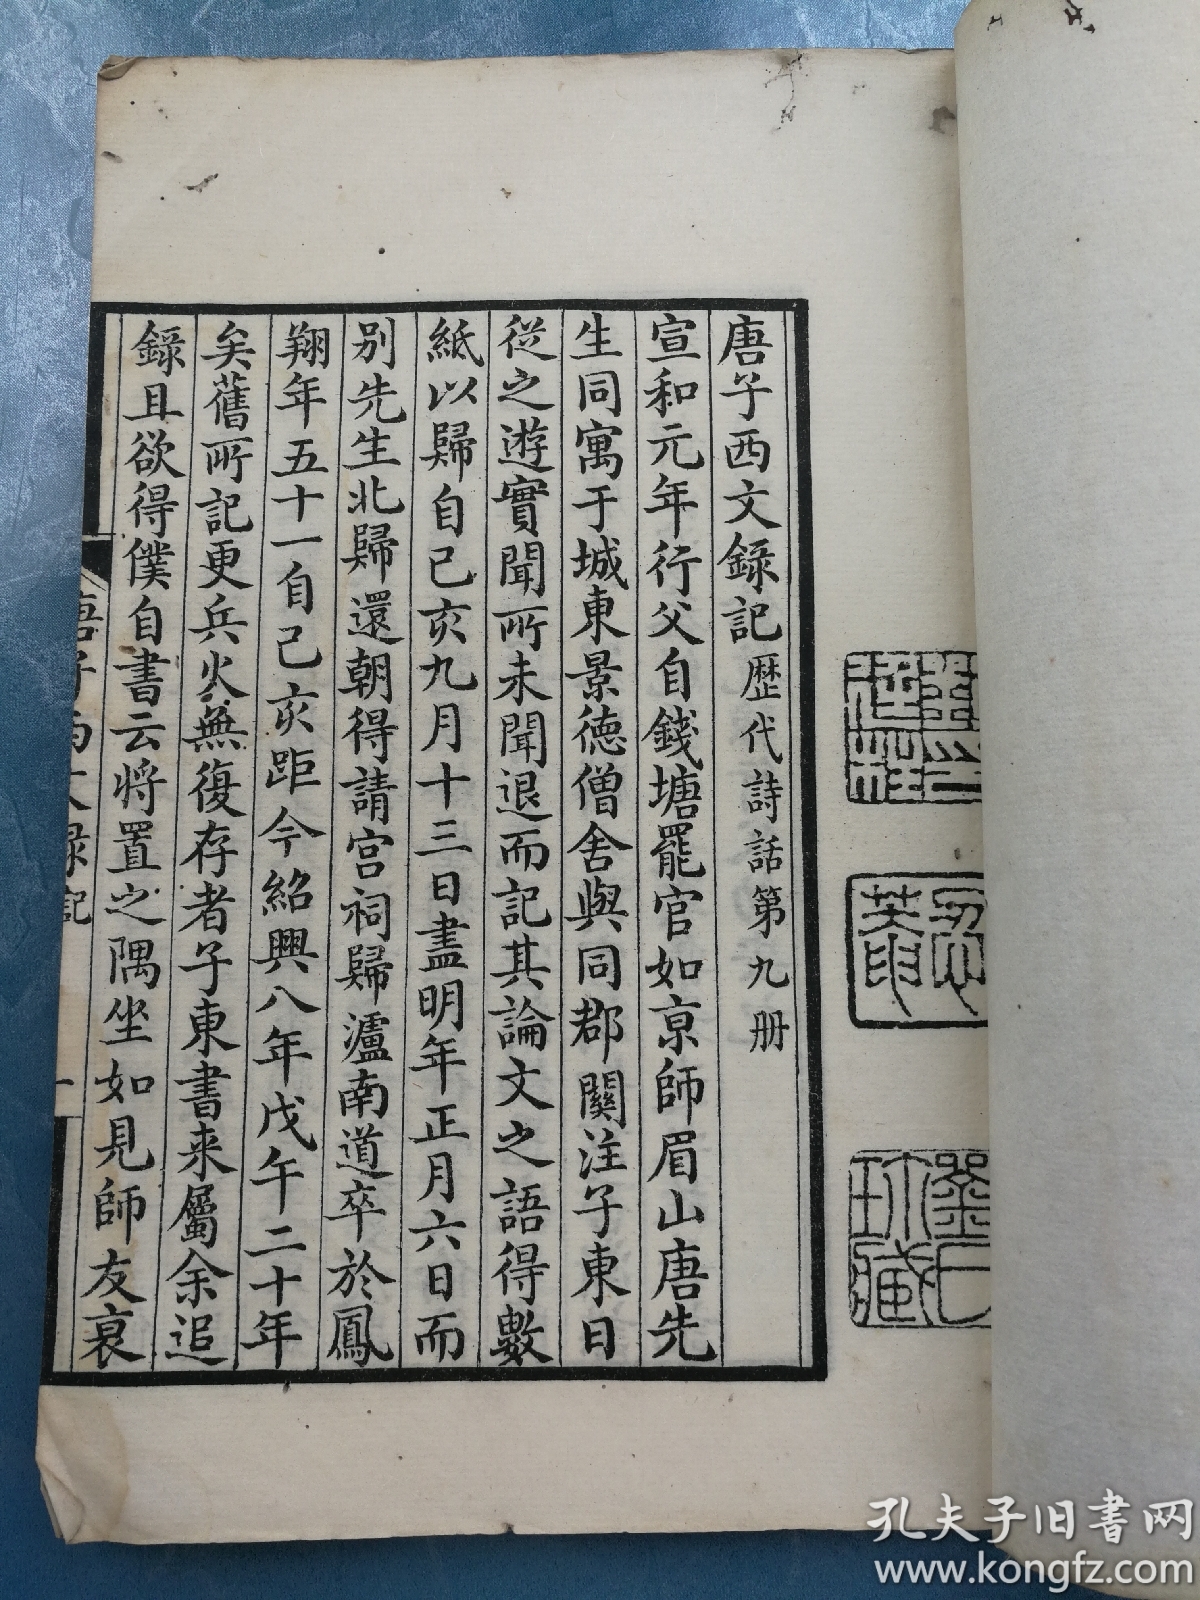 唐子西文錄記 歷代詩話第九册
宣和元年行父自錢塘罷官如京師眉山唐先
生同寓于城東景德僧舍與同郡關注子東日
從之遊實聞所未聞退而記其論文之語得數
紙以歸自己亥九月十三日盡明年正月六日而
別先生北歸還朝得請宫祠歸瀘南道卒於鳳
翔年五十一自己亥距今紹興八年戊午二十年
矣舊所記更兵火無復存者子東書来屬余追
錄且欲得僕自書云將置之隅坐如見師友裒
唐子西文錄記
一
孔夫子旧书网
www.kongfz.com